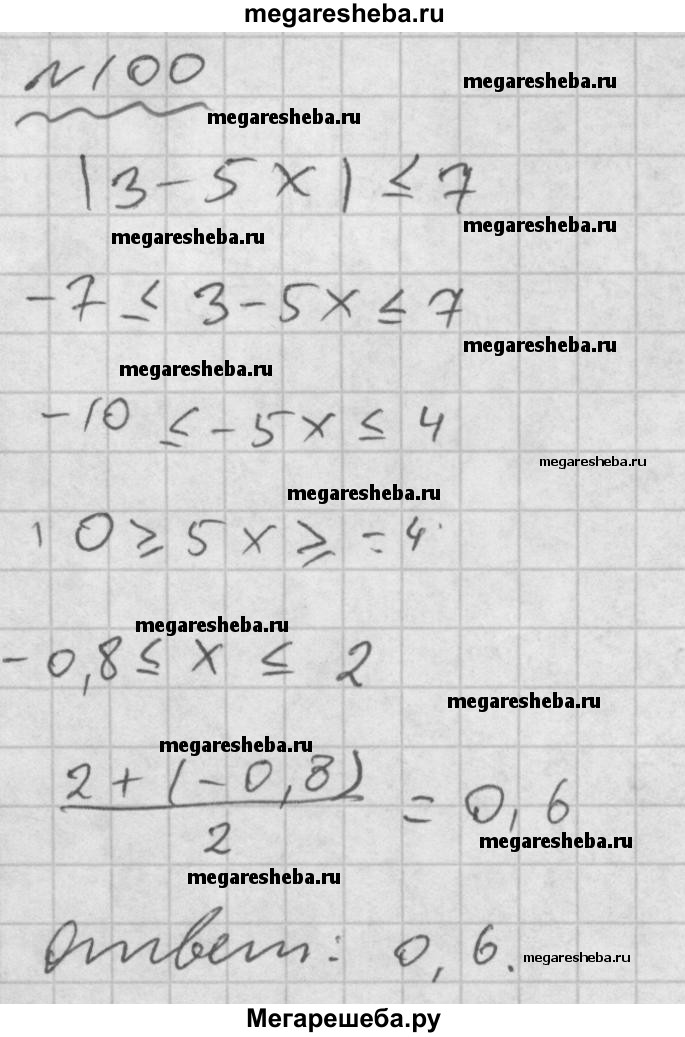 megaresheba.ru
№100
megaresheba.ru
megaresheba.ru
|3-5x| ≤ 7
megaresheba.ru
megaresheba.ru
-7 ≤ 3-5x ≤ 7
megaresheba.ru
megaresheba.ru
-10 ≤ -5x ≤ 4
megaresheba.ru
megaresheba.ru
10 ≥ 5x ≥ -4
megaresheba.ru
-0,8 ≤ x ≤ 2
megaresheba.ru
megaresheba.ru
2+(-0,8)
2
= 0,6
megaresheba.ru
megaresheba.ru
ответ: 0,6.
megaresheba.ru
Мегарешеба.ру